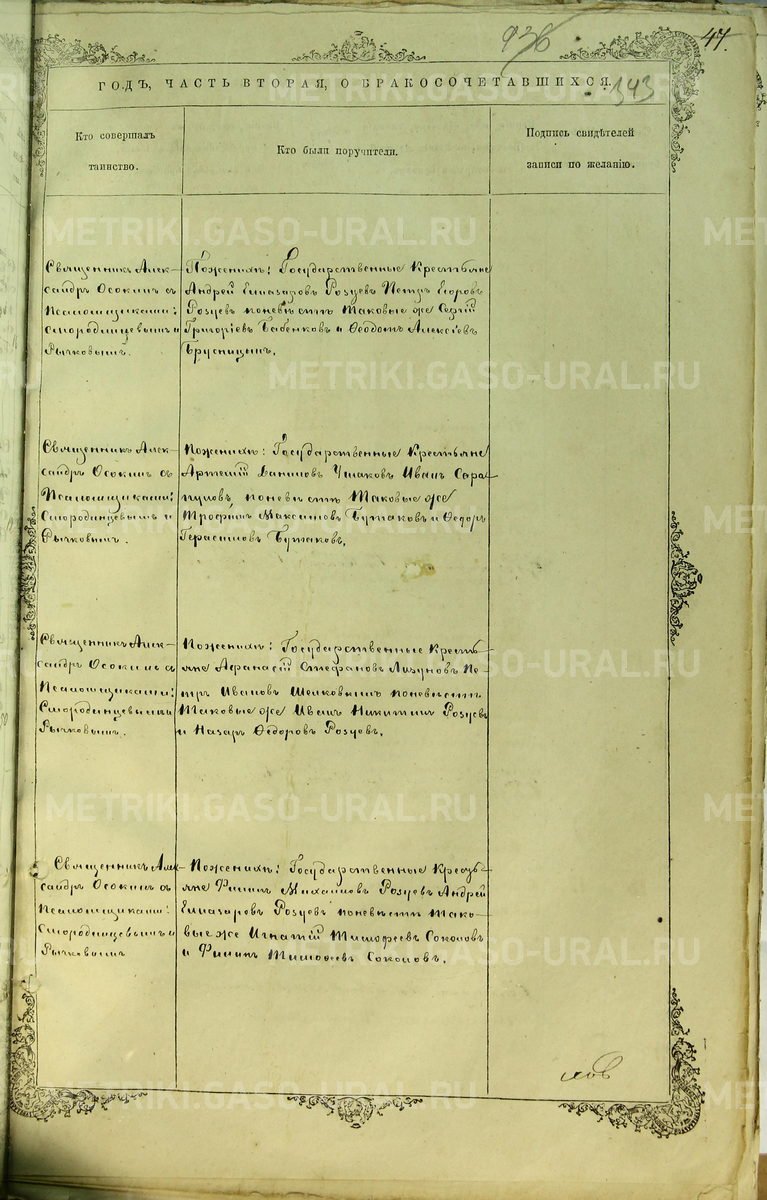 936
47.
343
ГОДЪ, ЧАСТЬ ВТОРАЯ, О БРАКОСОЧЕТАВШИХСЯ.
Кто совершалъ
таинство.
Кто были поручители.
Подпись свидѣтелей
записи по желанію.
Священникъ Алек-
сандръ Осокинъ съ
Псаломщиками:
Смородинцевымъ и
Рычковымъ.
Поженихѣ: Государственные Крестьяне
Андрей Елиазаровъ Розуевъ Петръ Егоровъ
Розуевъ поневѣстѣ Таковые же Сергій
Григорьевъ Бабенковъ и Ѳеодотъ Алексѣевъ
Брусницынъ.
Священникъ Алек-
сандръ Осокинъ съ
Псаломщиками:
Смородинцевымъ и
Рычковымъ.
Поженихѣ: Государственные Крестьяне
Артемій Даниловъ Ушаковъ Иванъ Сара-
пуловъ, поневѣстѣ Таковые же
Трофимъ Максимовъ Бутаковъ и Ѳедоръ
Герасимовъ Бутаковъ.
Священникъ Алек-
сандръ Осокинъ съ
Псаломщиками:
Смородинцевымъ и
Рычковымъ.
Поженихѣ: Государственные Кресть-
яне Афанасій Стефановъ Лизуновъ Пе-
тръ Ивановъ поневѣстѣ
Таковые же Иванъ Никитинъ Розуевъ
и Назаръ Ѳедоровъ Розуевъ.
Священникъ Алек-
сандръ Осокинъ съ
Псаломщиками:
Смородинцевымъ и
Рычковымъ
Поженихѣ: Государственные Кресть-
яне Филипъ Михаиловъ Розуевъ Андрей
Елиазаровъ Розуевъ поневѣстѣ Тако-
вые же Игнатій Тимофеевъ Соколовъ
и Филипъ Тимофеевъ Соколовъ.
METRIKI.GASO-URAL.RU
METRIKI.GASO-URAL.RU
METRIKI.GASO-URAL.RU
METRIKI.GASO-URAL.RU
METRIKI.GASO-URAL.RU
METRIKI.GASO-URAL.RU
METRIKI.GASO-URAL.RU
METRIKI.GASO-URAL.RU